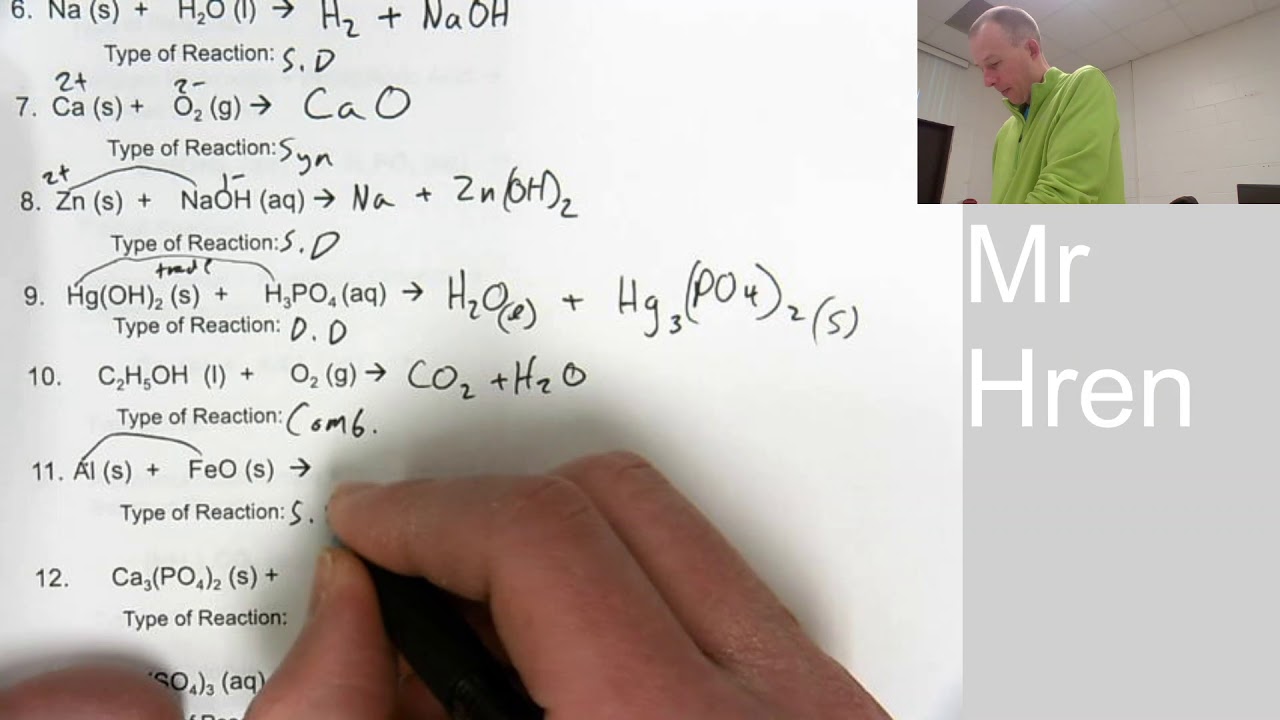 6. Na (s) + H₂O (l) → H₂ + NaOH
Type of Reaction: S.D
2+ 2-
7. Ca (s) + O₂ (g) → CaO
Type of Reaction: Syn
2+ 1-
8. Zn (s) + NaOH (aq) → Na + Zn(OH)₂
Type of Reaction: S.D
9. Hg(OH)₂ (s) + H₃PO₄ (aq) → H₂O(l) + Hg₃(PO₄)₂(s)
Type of Reaction: D.D
10. C₂H₅OH (l) + O₂ (g) → CO₂ + H₂O
Type of Reaction: Comb.
11. Al (s) + FeO (s) →
Type of Reaction: S.
12. Ca₃(PO₄)₂ (s) +
Type of Reaction:
SO₄)₃ (aq)
Mr
Hren